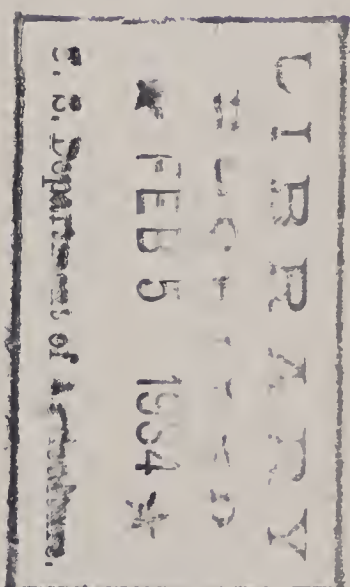 LIBRARY
RECEIVED
★ FEB 5 1934 ★
U. S. Department of Agriculture.